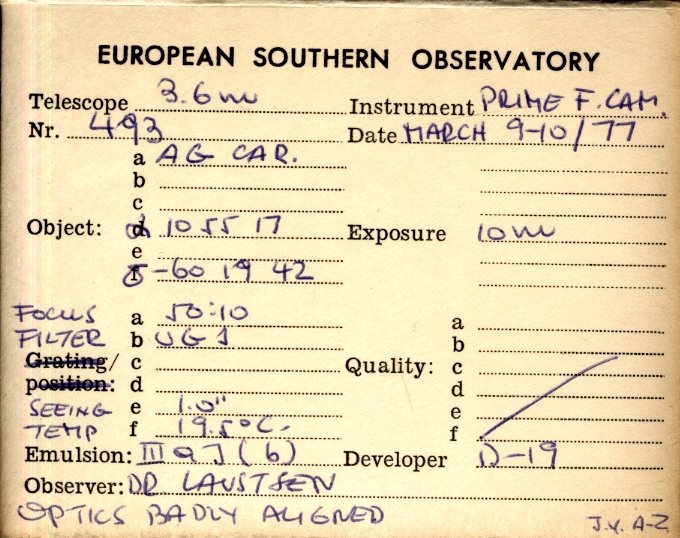 EUROPEAN SOUTHERN OBSERVATORY
Telescope 3.6m Instrument PRIME F. CAM.
Nr. 493 Date MARCH 9-10/77
a AG CAR.
b
c
Object: d α 10 55 17 Exposure 10m
e
f δ -60 19 42
FOCUS a 50:10 a
FILTER b UG1 b
Grating/ c Quality: c
position: d d
SEEING e 1.0" e
TEMP f 19.5°C. f
Emulsion: III a J (b) Developer D-19
Observer: DR LAUSTSEN
OPTICS BADLY ALIGNED
J.V. A-Z